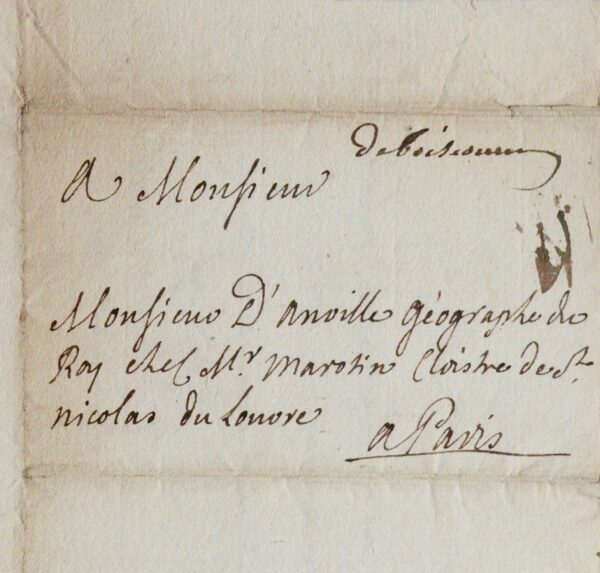 A Monsieur
Monsieur D'anville géographe du
Roy chez Mr. Marotin Cloistre de St.
nicolas du Louvre
a Paris